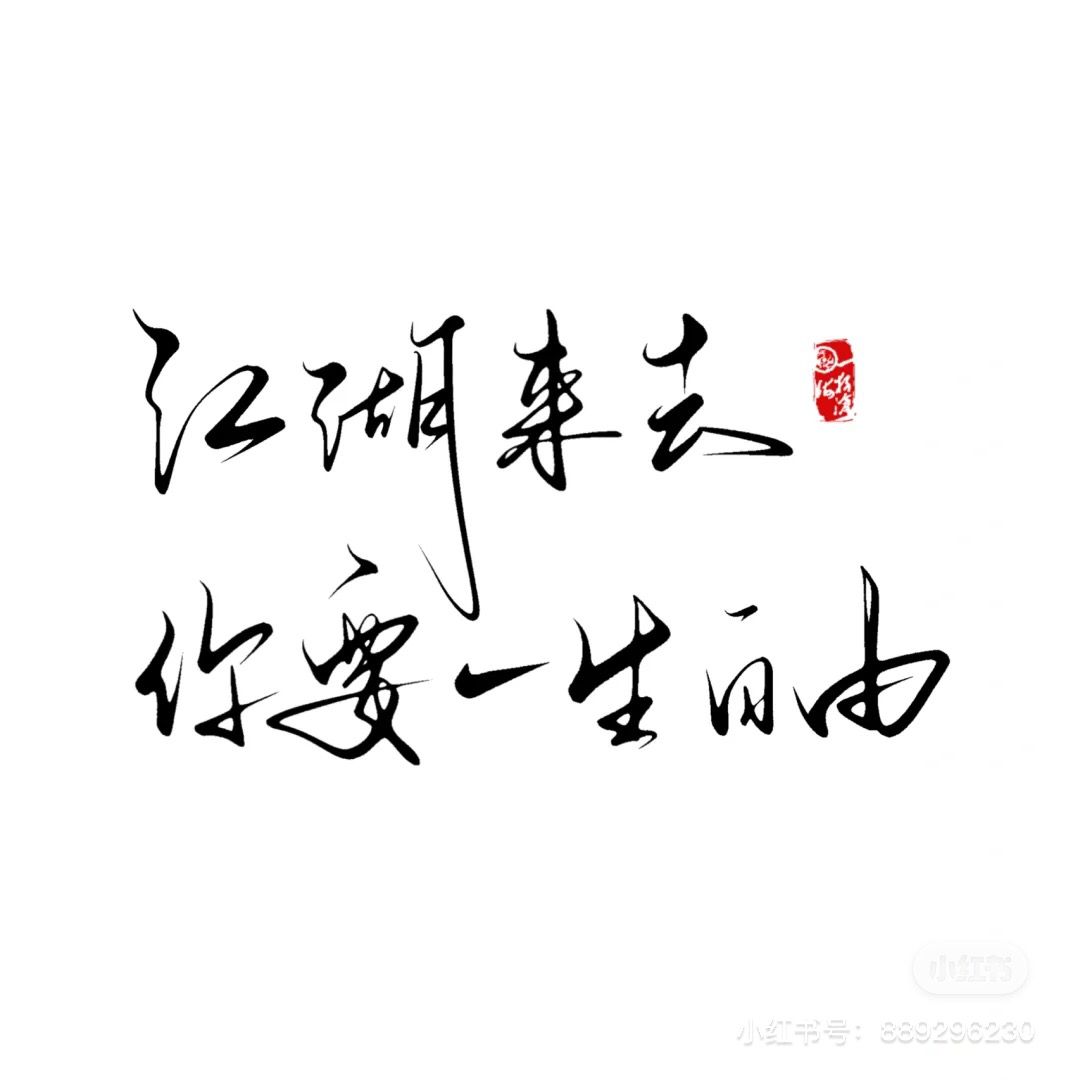 江湖来去
你要一生自由
小红书
小红书号：889296230